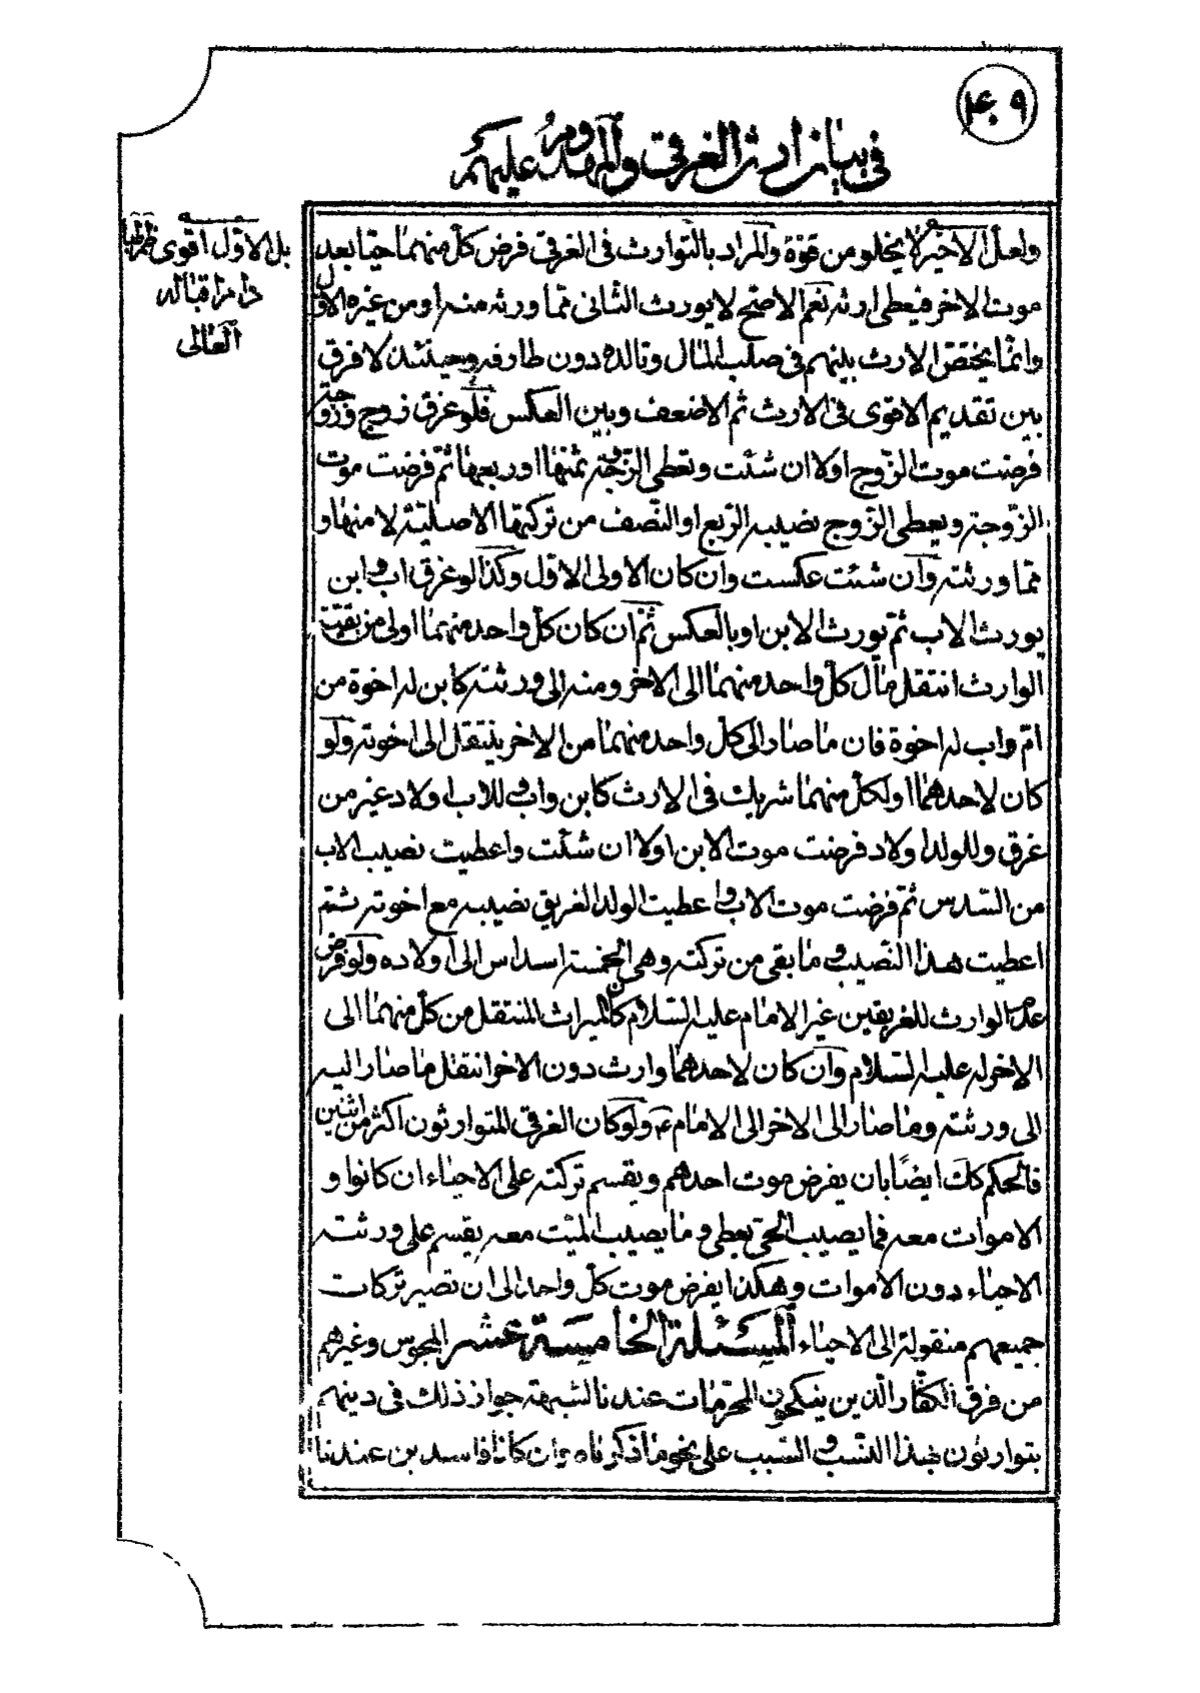 ۴۰۹
في بيان ارث الغرقى والمهدوم عليهم
ولعل الاخير لا يخلو من قوة والمراد بالتوارث فى الغرقى فرض كل منهما حيا بعد
موت الاخر فيعطى ارثه نعم الاصح لا يورث الثانى مما ورثه منه او من غيره الاول
وانما يختص الارث بينهم فى صلب المال وتالده دون طارفه وحينئذ لا فرق
بين تقديم الاقوى فى الارث ثم الاضعف وبين العكس فلو غرق زوج وزوجة
فرضت موت الزوج اولا ان شئت وتعطى الزوجة ثمنها او ربعها ثم فرضت موت
الزوجة ويعطى الزوج نصيبه الربع او النصف من تركتها الاصلية لا منها و
مما ورثته وان شئت عكست وان كان الاولى الاول وكذا لو غرق اب و ابن
يورث الاب ثم يورث الابن او بالعكس ثم ان كان كل واحد منهما اولى من بقية
الوارث انتقل مال كل واحد منهما الى الاخر ومنه الى ورثته كابن له اخوة من
ام واب له اخوة فان ما صار الى كل واحد منهما من الاخر ينتقل الى اخوته ولو
كان لاحدهما او لكل منهما شريك فى الارث كابن واب و للاب اولاد غير من
غرق وللولد اولاد فرضت موت الابن اولا ان شئت واعطيت نصيب الاب
من السدس ثم فرضت موت الاب و اعطيت الولد الغريق نصيبه مع اخوته ثم
اعطيت هذا النصيب و ما بقى من تركته وهى الخمسة اسداس الى اولاده ولو فرض
عدم الوارث للغريقين غير الامام عليه السلام كان الميراث المنتقل من كل منهما الى
الاخر له عليه السلام وان كان لاحدهما وارث دون الاخر انتقل ما صار اليه
الى ورثته وما صار الى الاخر الى الامام ع ولو كان الغرقى المتوارثون اكثر من اثنين
فالحكم كك ايضًا بان يفرض موت احدهم ويقسم تركته على الاحياء ان كانوا و
الاموات معه فما يصيب الحى يعطى و ما يصيب الميت معه يقسم على ورثته
الاحياء دون الاموات وهكذا يفرض موت كل واحد الى ان تصير تركات
جميعهم منقولة الى الاحياء المسئلة الخامسة عشر المجوس وغيرهم
من فرق الكفار الذين ينكحون المحرمات عندنا لشبهة جواز ذلك فى دينهم
يتوارثون بهذا النسب و السبب على نحو ما ذكرناه وان كانا فاسدين عندنا
بل الاول اقوى
دام اقباله
العالى